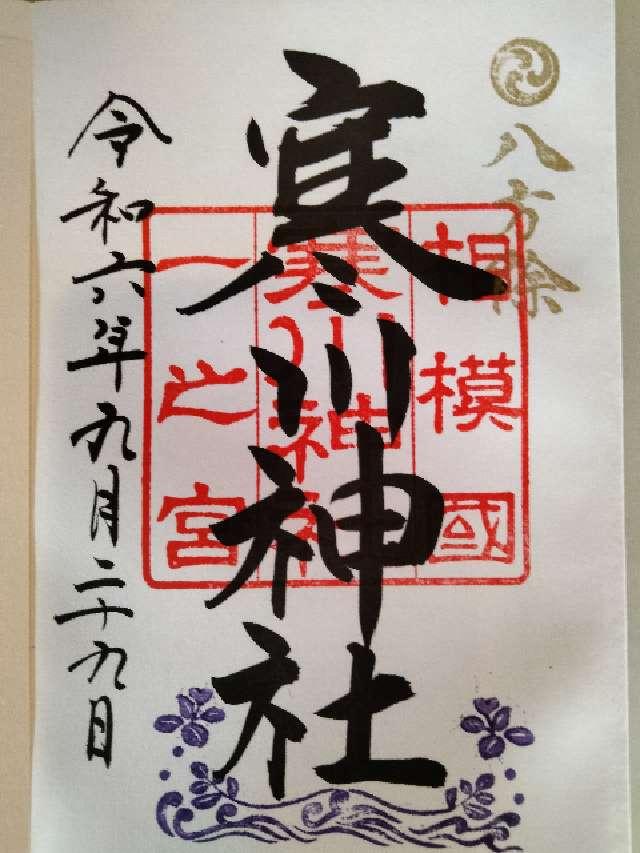 八方除
相模國
寒川神社
一之宮
寒川神社
令和六年九月二十九日